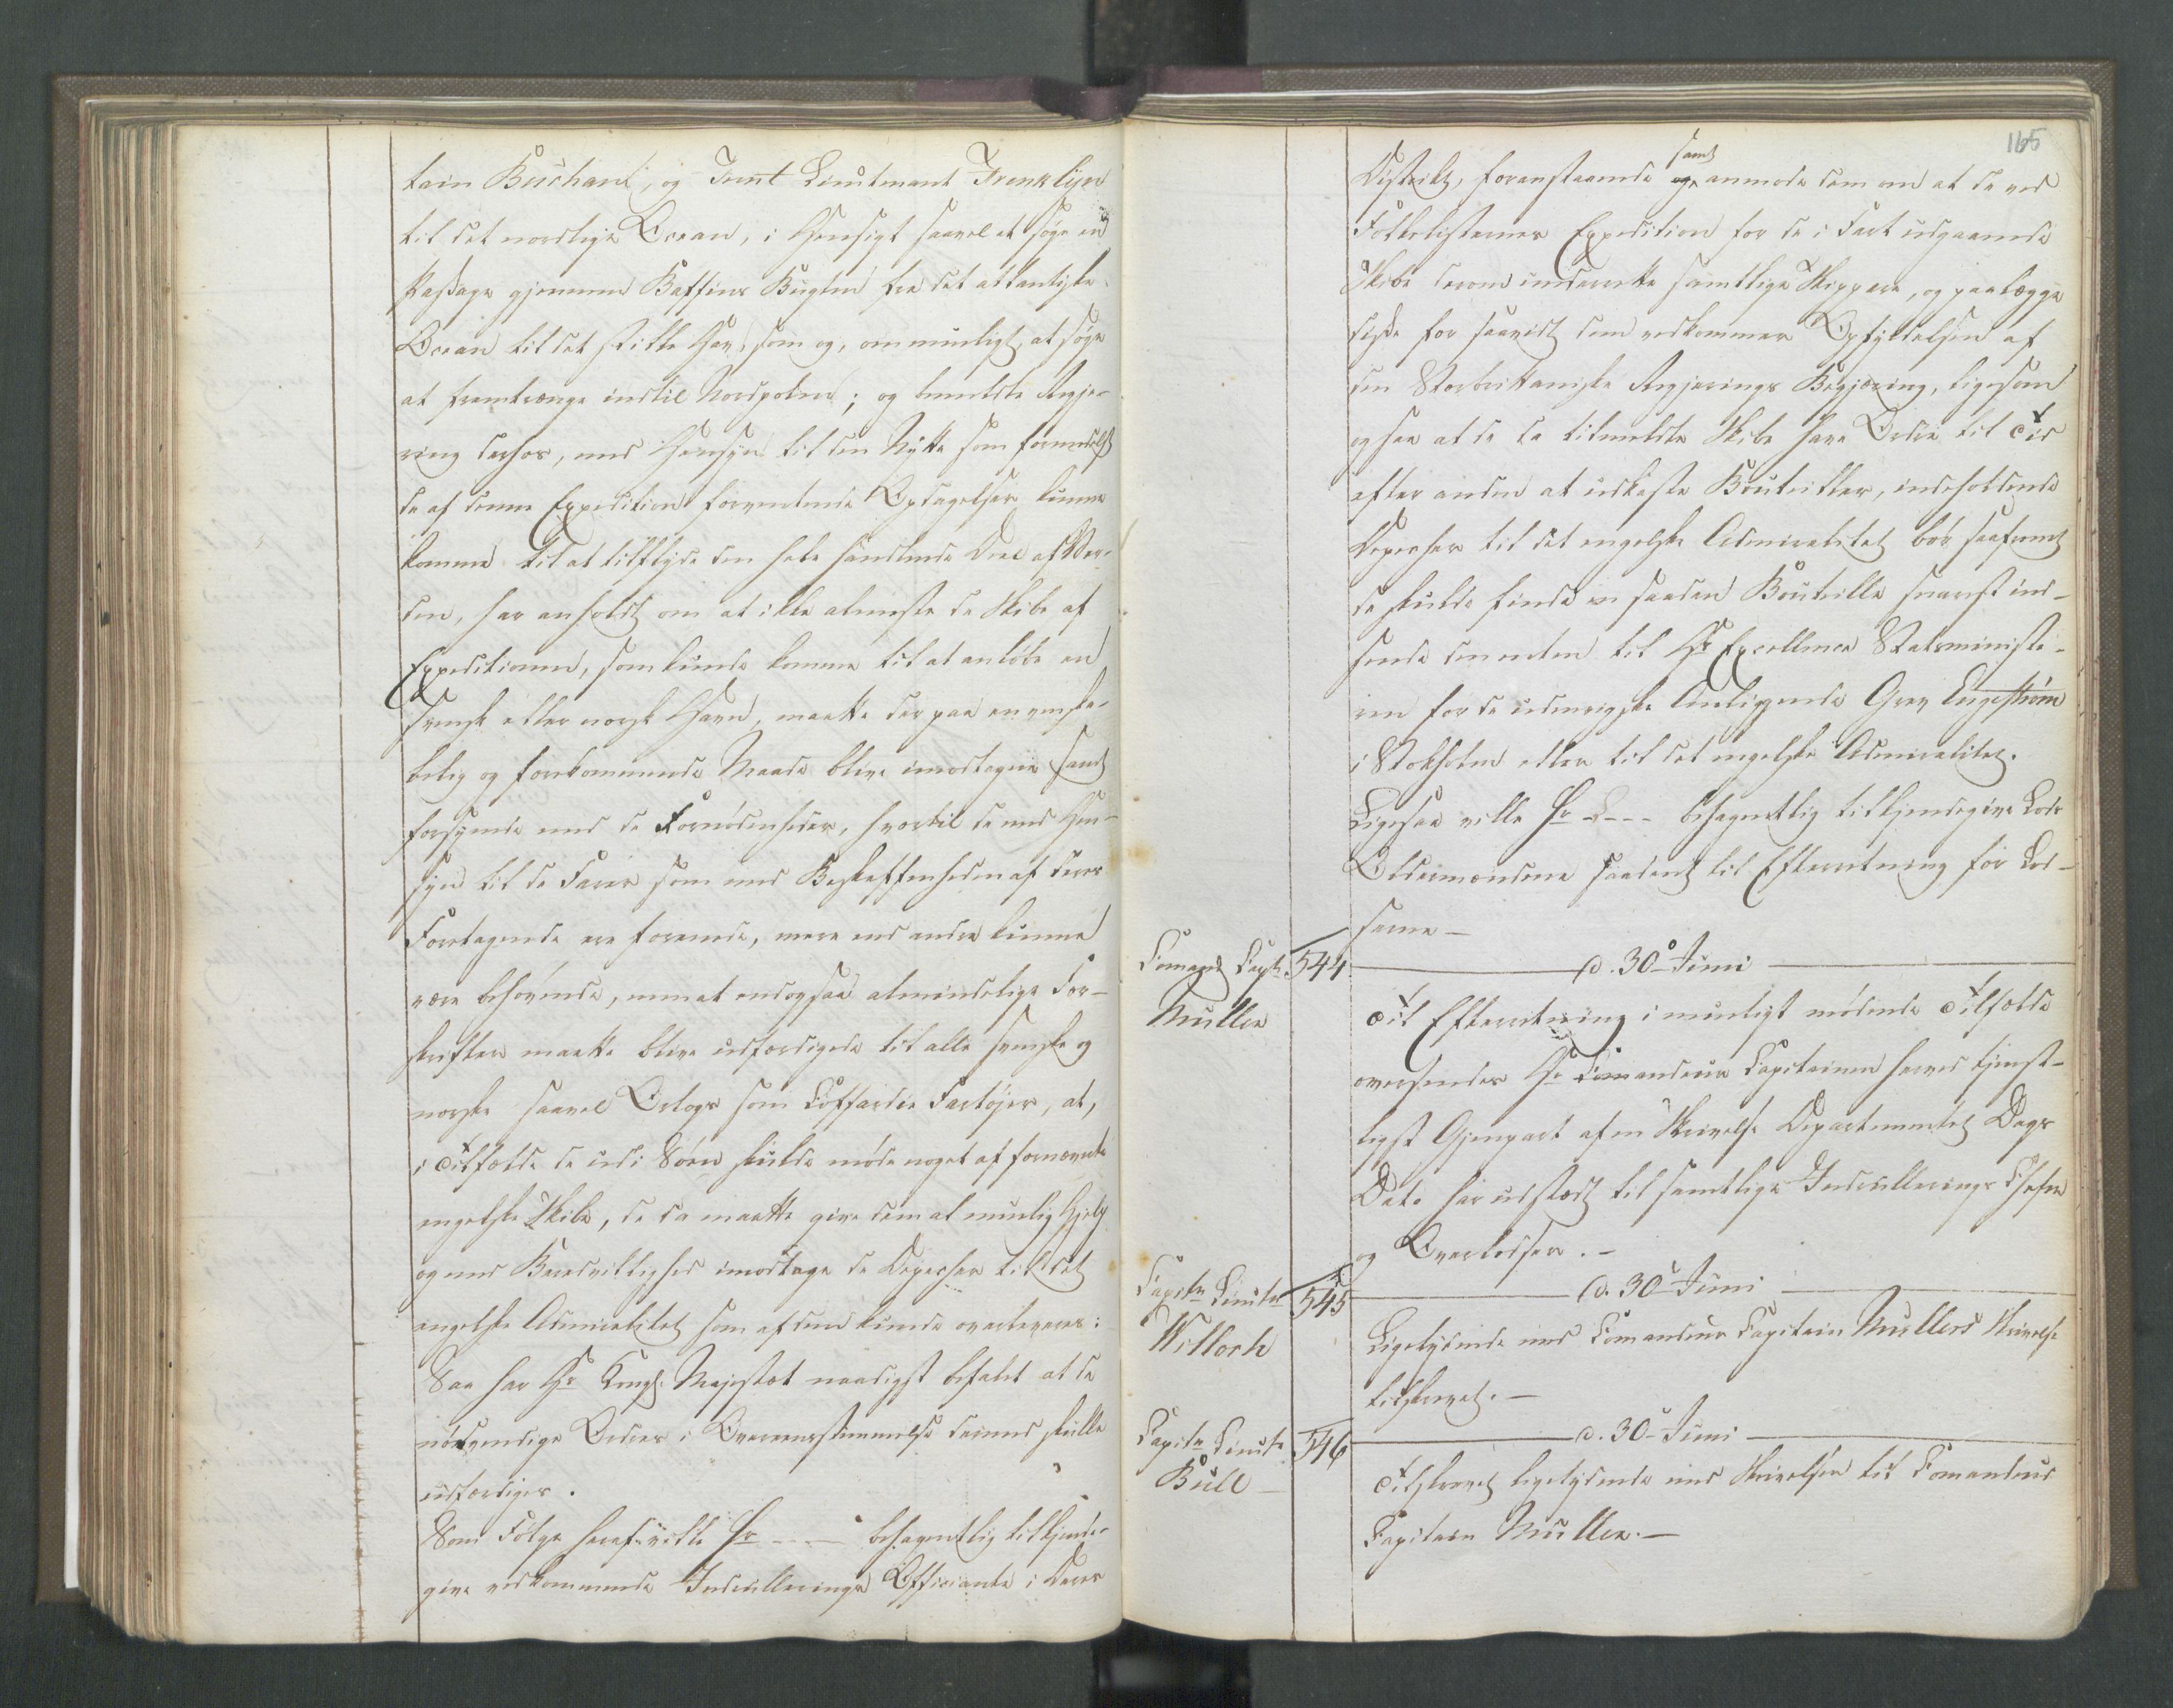 tain Buchant, og Trent Lieutenant Frenklyn
til det nordlige Ocean, i Hensigt saavel at søge en
Passage gjennem Baffins Bugten fra det atlantiske
Ocean til det stille Hav, som og, om muligt, at søge
at fremtrænge indtil Nordpolen; og bemeldte Regje-
ring derhos, med Hensyn til den Nytte som formedelst
de af denne Expedition forventende Opdagelser kunne
komme til at tilflyde den hele handlende Deel af Ver-
den, har anholdt om at ikke aleneste de Skibe af
Expeditionen, som kunde komme til at anløbe en
svensk eller norsk Havn, maatte der paa en venska-
belig og forekommende Maade blive imodtagne samt
forsynede med de Fornødenheder, hvortil de med Hen-
syn til de Farer som med Beskaffenheden af deres
Foretagende ere forenede, mere end andre kunne
være behøvende, men at endogsaa almindelige For-
skrifter maatte blive udfærdigede til alle svenske og
norske saavel Orlogs som Coffardie Fartøjer, at,
i Tilfælde de udi Søen skulde møde noget af fornævnte
engelske Skibe, de da maatte give dem al muelig Hjelp
og med Beredvillighed imodtage de Depecher til det
engelske Admiralitet som af dem kunde overleveres:
Saa har Hs Kongl. Majestæt naadigst befalet at de
nødvendige Ordres i Overeensstemmelse dermed skulle
udfærdiges.
Som Følge heraf vilde Hr - - - behagentlig tilkjende-
give vedkommende Indrullerings Officiante i Deres
165
District, foranstaaende samt
og anmode dem om at de ved
Folkelisternes Expedition for de i Fart udgaaende
Skibe derom underrette samtlige Skippere, og paalægge
disse for saavidt dem vedkommer Opfyldelsen af
den Storbrittaniske Regjerings Begjæring, ligesom
og saa at de da tilmeldte Skibe have Ordre til Tid
efter anden at udkaste Bouteiller, indeholdende
Depecher til det engelske Admiralitet bør saafremt
de skulde finde en saadan Bouteille snarest ind-
sende den enten til Hs Excellence Statsministe-
ren for de udenrigske Anliggende Grev Engestrøm
i Stokholm eller til det engelske Admiralitet.
Ligesaa ville Hr - - - behagentlig tilkjendegive Lods
Oldermændene saadant til Efterretning for Lod-
serne -
Comagnd Capt.
Muller
544
d. 30 Juni
Til Efterretning i muligt mødende Tilfælde
oversendes Hr Comandeur Capitainen herved tjenst-
ligst Gjenpart af en Skrivelse Departementet Dags
Dato har udstædt til samtlige Indrullerings Chefer
og Overlodser. -
Capitn Lieutn
Willoch
545
d. 30 Juni
Ligelydende med Comandeur Capitain Mullers Skrivelse
tilskrevet. -
Capitn Lieutn
Bull -
546
d. 30 Juni
Tilskrevet ligelydende med Skrivelsen til Comandeur
Capitain Muller. -